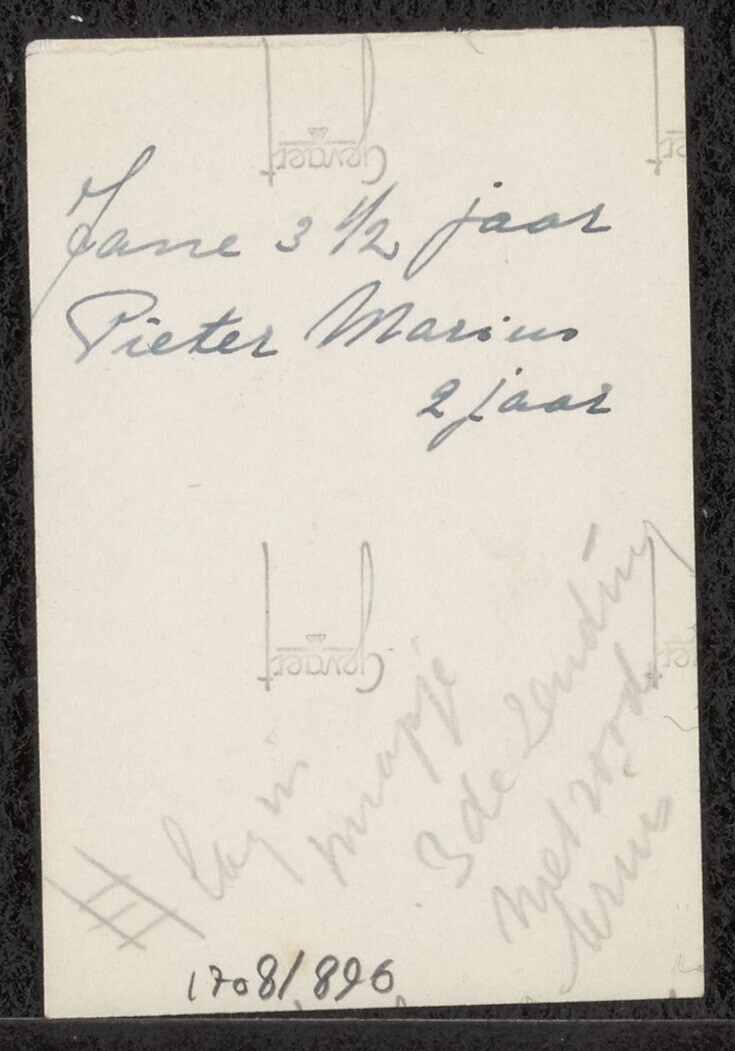 Gevaert
Janne 3 1/2 jaar
Pieter Marius
2 jaar
Gevaert
lag in
mapje
3de zending
met rood
kruis
1708/896